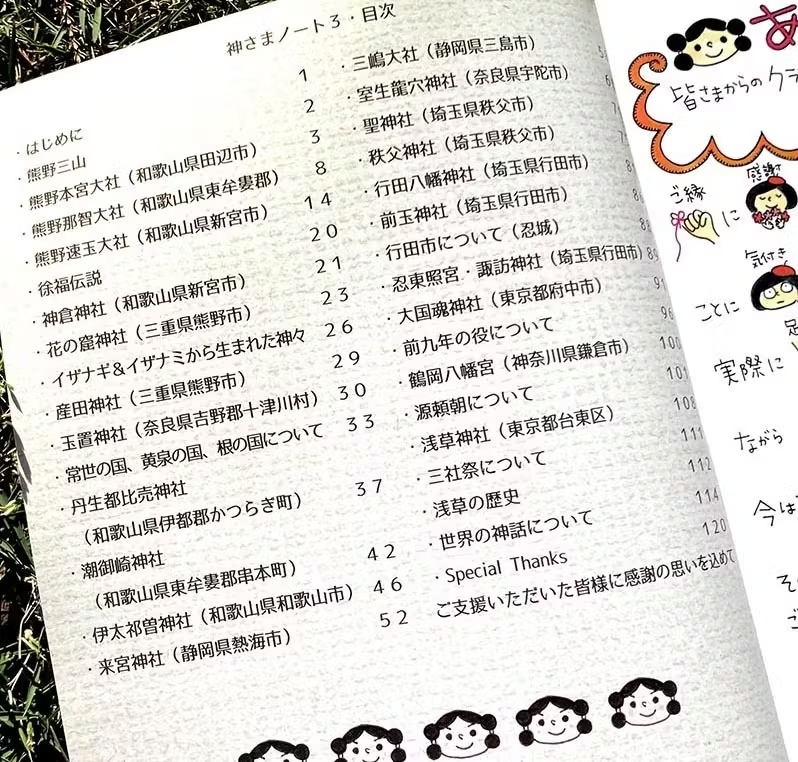 神さまノート3・目次
・はじめに 1
・熊野三山 2
・熊野本宮大社（和歌山県田辺市） 3
・熊野那智大社（和歌山県東牟婁郡） 8
・熊野速玉大社（和歌山県新宮市） 14
・徐福伝説 20
・神倉神社（和歌山県新宮市） 21
・花の窟神社（三重県熊野市） 23
・イザナギ＆イザナミから生まれた神々 26
・産田神社（三重県熊野市） 29
・玉置神社（奈良県吉野郡十津川村） 30
・常世の国、黄泉の国、根の国について 33
・丹生都比売神社
（和歌山県伊都郡かつらぎ町） 37
・潮御崎神社
（和歌山県東牟婁郡串本町） 42
・伊太祁曽神社（和歌山県和歌山市） 46
・来宮神社（静岡県熱海市） 52
・三嶋大社（静岡県三島市）
・室生龍穴神社（奈良県宇陀市）
・聖神社（埼玉県秩父市）
・秩父神社（埼玉県秩父市）
・行田八幡神社（埼玉県行田市）
・前玉神社（埼玉県行田市）
・行田市について（忍城） 88
・忍東照宮・諏訪神社（埼玉県行田市） 89
・大国魂神社（東京都府中市） 91
・前九年の役について 96
・鶴岡八幡宮（神奈川県鎌倉市） 100
・源頼朝について 101
・浅草神社（東京都台東区） 108
・三社祭について 111
・浅草の歴史 112
・世界の神話について 114
・Special Thanks 120
ご支援いただいた皆様に感謝の思いを込めて
あ
皆さまからのクラ
感謝
ご縁
に
気付き
ことに
実際に
ながら
今は
そ
ご